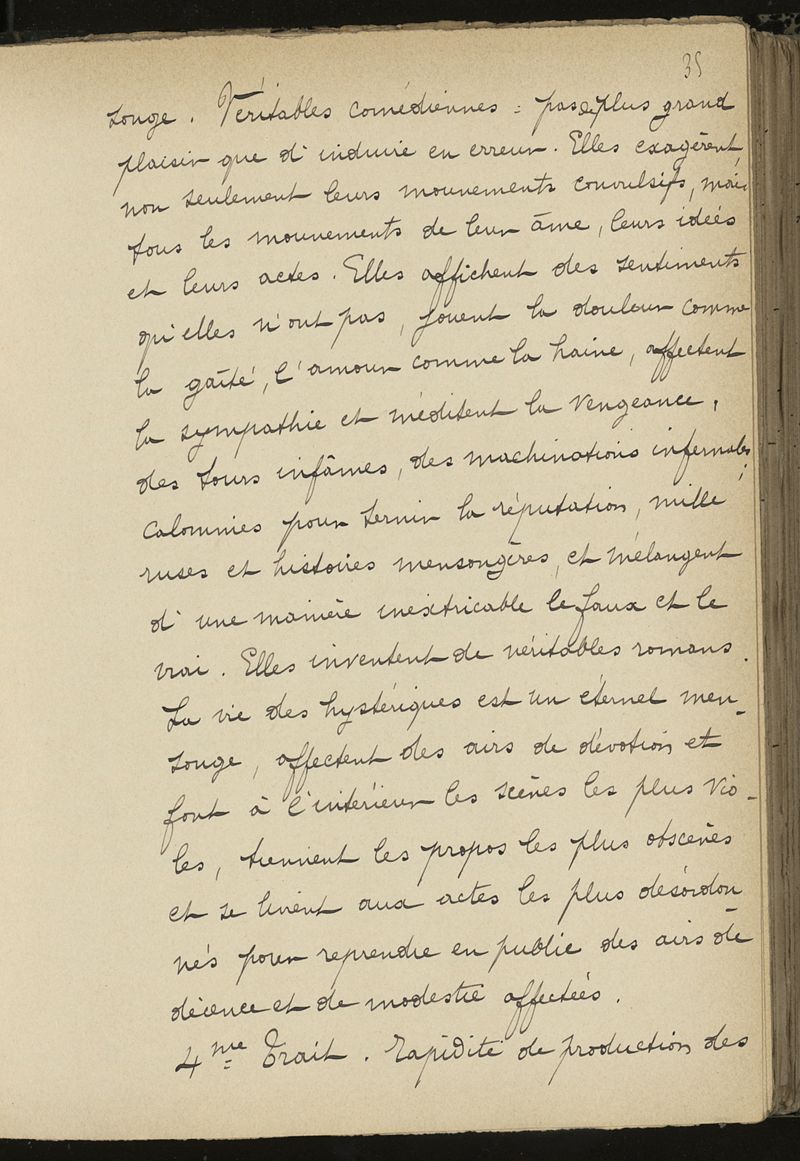 35
songe. Véritables comédiennes = pas de plus grand
plaisir que d'induire en erreur. Elles exagèrent,
non seulement leurs mouvements convulsifs, mais
tous les mouvements de leur âme, leurs idées
et leurs actes. Elles affichent des sentiments
qu'elles n'ont pas, jouent la douleur comme
la gaîté, l'amour comme la haine, affectent
la sympathie et méditent la vengeance,
des tours infâmes, des machinations infernales,
calomnies pour ternir la réputation, mille
ruses et histoires mensongères, et mélangent
d'une manière inextricable le faux et le
vrai. Elles inventent de véritables romans.
La vie des hystériques est un éternel men-
songe, affectent des airs de dévotion et
font à l'intérieur les scènes les plus vio-
les, tiennent les propos les plus obscènes
et se livrent aux actes les plus désordon-
nés pour reprendre en public des airs de
décence et de modestie affectées.
4me Trait. Rapidité de production des